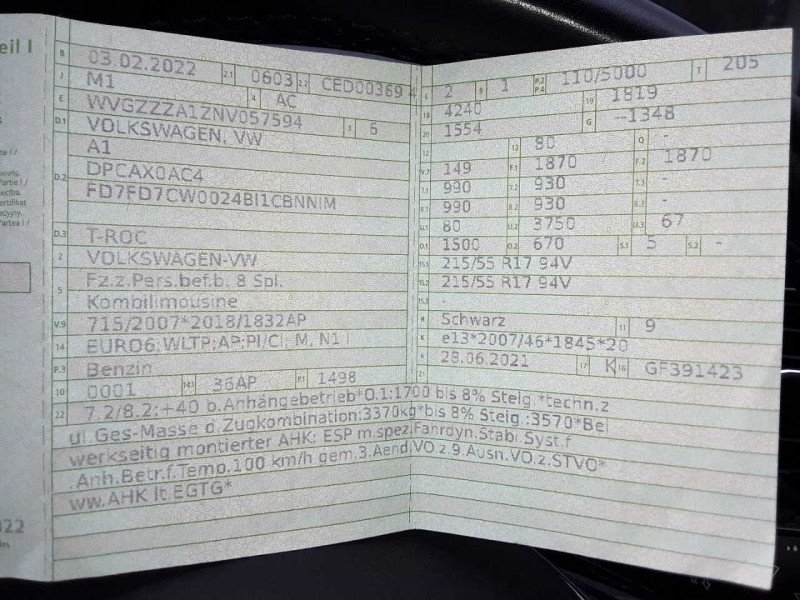 eil I
B 03.02.2022 2.1 0603 2.2 CED00369 4
J M1 4 AC
E WVGZZZA1ZNV057594 3 6
D.1 VOLKSWAGEN, VW
A1
D.2 DPCAX0AC4
FD7FD7CW0024BI1CBNNIM
D.3 T-ROC
2 VOLKSWAGEN-VW
5 Fz.z.Pers.bef.b. 8 Spl.
Kombilimousine
V.9 715/2007*2018/1832AP
14 EURO6;WLTP;AP;PI/CI; M, N1 I
P.3 Benzin
10 0001 14.1 36AP P.1 1498
L 2 9 1 P.2 P.4 110/5000 T 205
18 4240 19 1819
20 1554 G --1348
12 - 13 80 Q -
V.7 149 F.1 1870 F.2 1870
7.1 990 7.2 930 7.3 -
8.1 990 8.2 930 8.3 -
U.1 80 U.2 3750 U.3 67
O.1 1500 O.2 670 S.1 5 S.2 -
15.1 215/55 R17 94V
15.2 215/55 R17 94V
15.3 -
R Schwarz 11 9
K e13*2007/46*1845*20
6 28.06.2021 17 K 16 GF391423
21
22 7.2/8.2:+40 b.Anhängebetrieb*O.1:1700 bis 8% Steig *techn.z
ul.Ges-Masse d.Zugkombination:3370kg*bis 8% Steig.:3570*Bei
werkseitig montierter AHK: ESP m.spez.Fahrdyn.Stabi.Syst.f
.Anh.Betr.f.Temp.100 km/h gem.3.Aend.VO.z 9.Ausn.VO.z.STVO*
ww.AHK lt.EGTG*
22